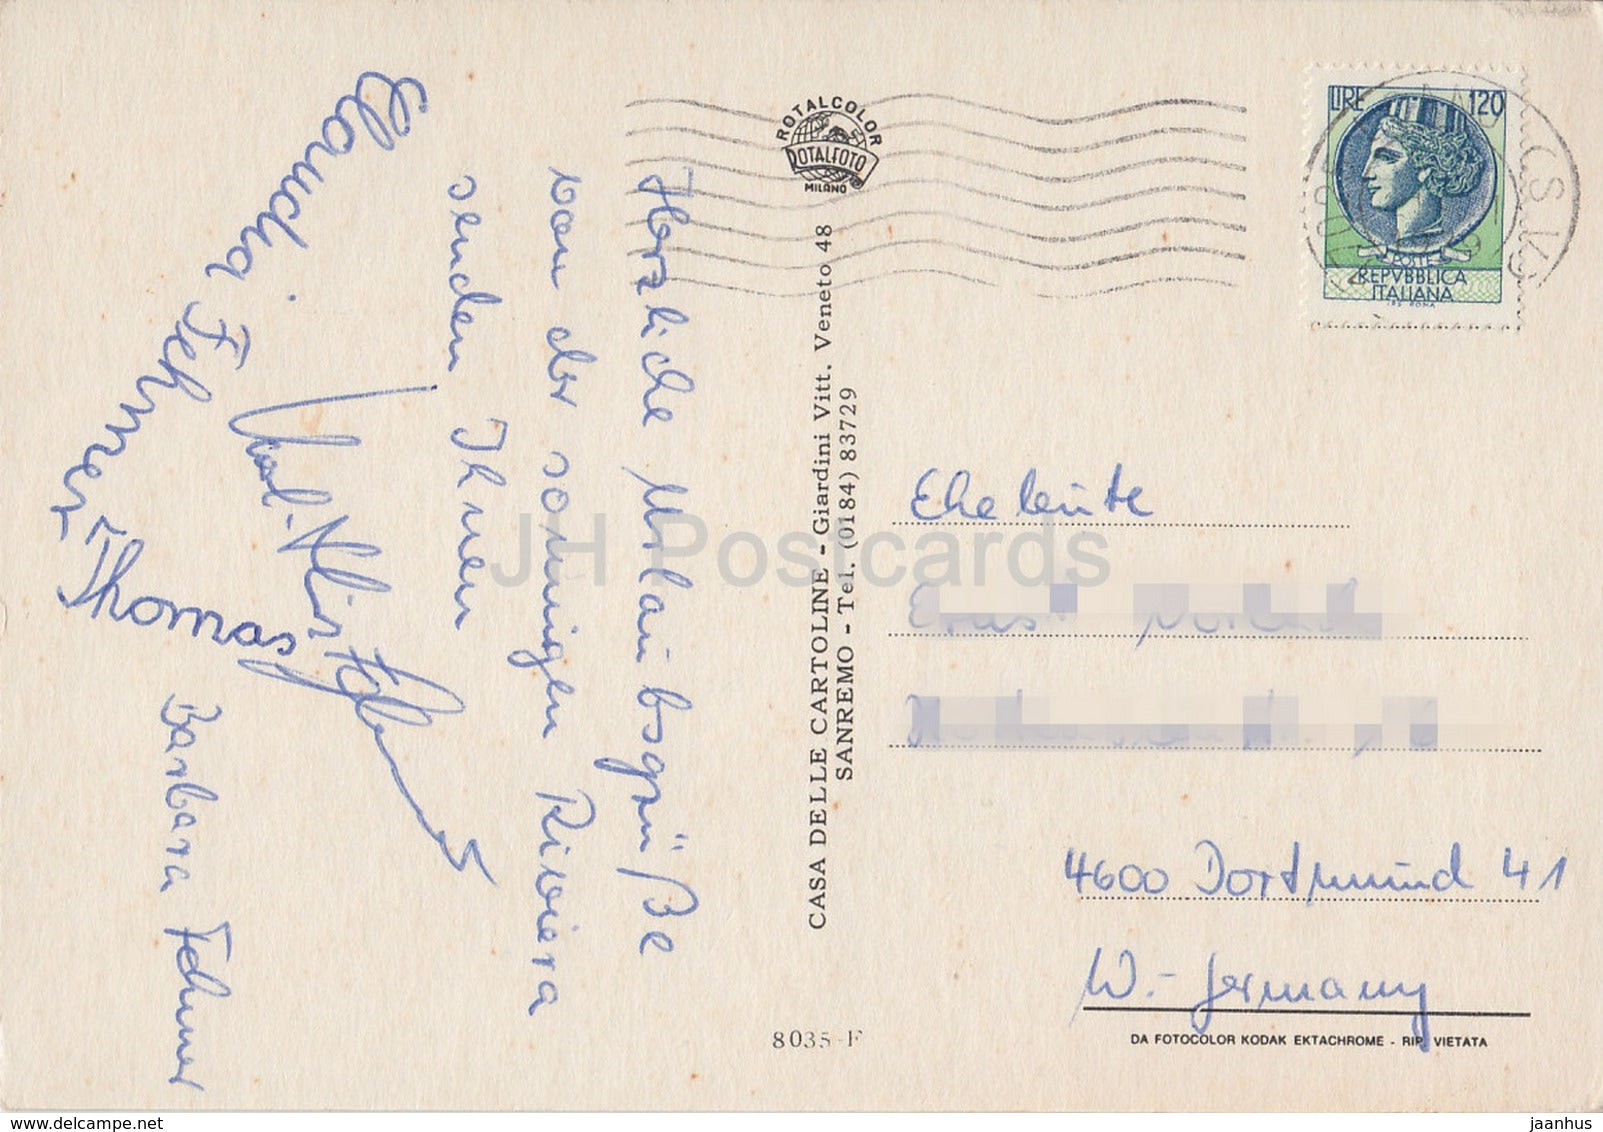 Herzliche Urlaubsgrüße
von der sonnigen Riviera
senden Ihnen
Claudia Fehmer
Thomas
Barbara Fehmer
ROTALCOLOR
ROTALFOTO
MILANO
CASA DELLE CARTOLINE - Giardini Vitt. Veneto 48
SANREMO - Tel. (0184) 83729
8035-F
LIRE 120
POSTE
REPVBBLICA
ITALIANA
Eheleute
4600 Dortmund 41
W.-Germany
DA FOTOCOLOR KODAK EKTACHROME - RIP. VIETATA
JH Postcards
delcampe.net
jaanhus